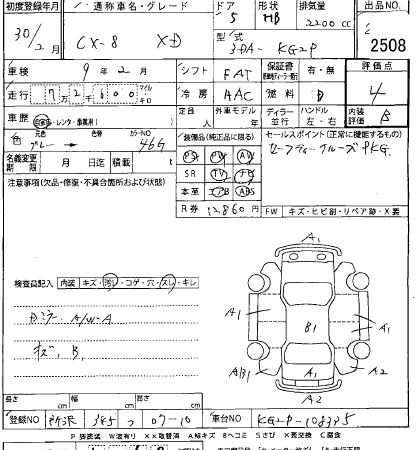 初度登録年月 通称車名・グレード ドア 形状 排気量 出品NO
30/2月 CX-8 XD 5 HB 2200cc
型式 3DA-KG2P 2508
車検 9年2月 シフト FAT 保証書 有・無 評価点
走行 72600 マイル キロ 冷房 AAC 燃料 D 4
車歴 自家・レンタ・事業用 定員 人 外車モデル 年 ディーラー 並行 ハンドル 左・右 内装評価 B
色 元色 グレー → 色替 カラーNO 46G 装備品(純正品に限る) セールスポイント(正常に機能するもの)
PS PW AW セーフティークルーズPKG.
名義変更期限 月 日迄 積載 t SR TV ナビ
注意事項(欠品・修復・不具合箇所および状態) 本革 エアB ABS
R券 12860円 FW キズ・ヒビ割・リペア跡・X要
A1
検査員記入 内装 キズ・汚レ・コゲ・穴・スレ・キレ
A1 B1 A1 A1
カミラー A/W-A
キズ、B.
A/B1 A1
A2 A2
長さ cm 幅 cm 高さ cm
登録NO 所沢 385 つ 07-10 車台NO KG2P-108385
P 要塗装 W 波有り XX 取替済 A 線キズ B ヘコミ S サビ X 要交換 C 腐食